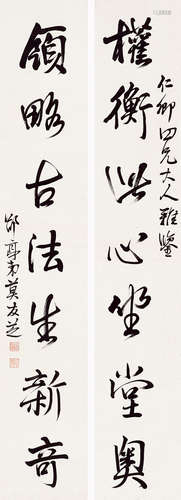 仁卿四兄大人雅鑒
權衡此心坐堂奧
領略古法生新奇
郘亭弟莫友芝